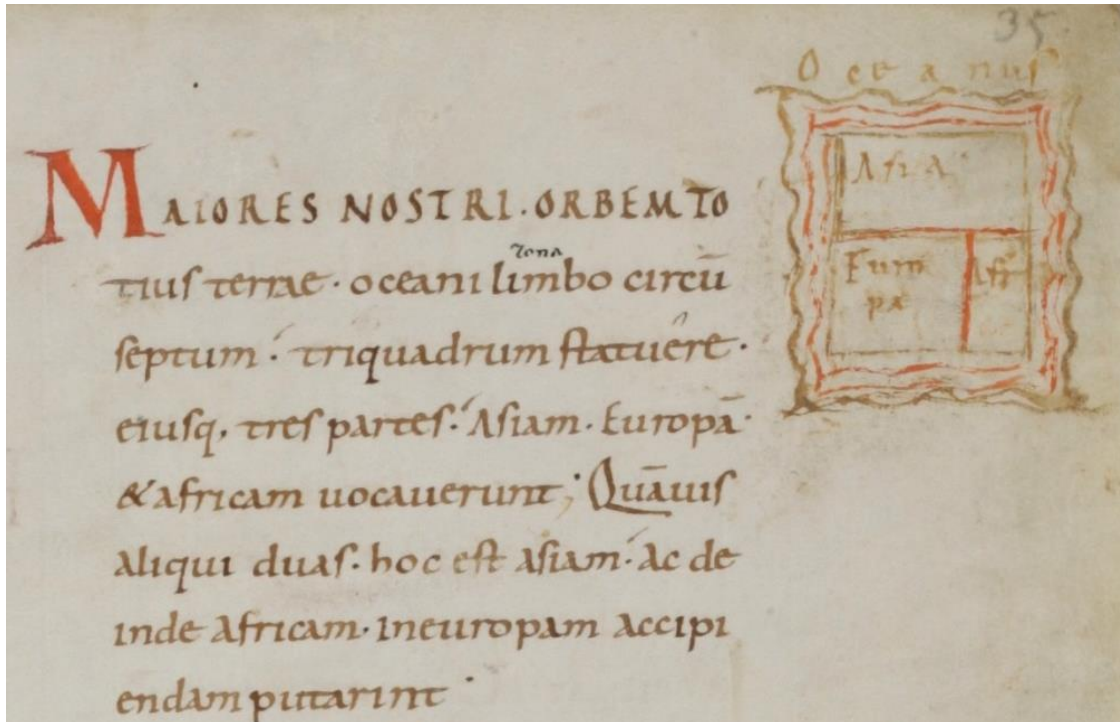 35.
Oceanus
Asia
Euro
pa
Afr̄
MAIORES NOSTRI · ORBEM TO
zona
tius terrae · oceani limbo circū
septum · triquadrum statuêre ·
eiusq, tres partes · Asiam · Europā ·
& africam uocauerunt ; Quāuis
aliqui duas · hoc est asiam · ac de
inde africam · ineuropam accipi
endam putarint ·